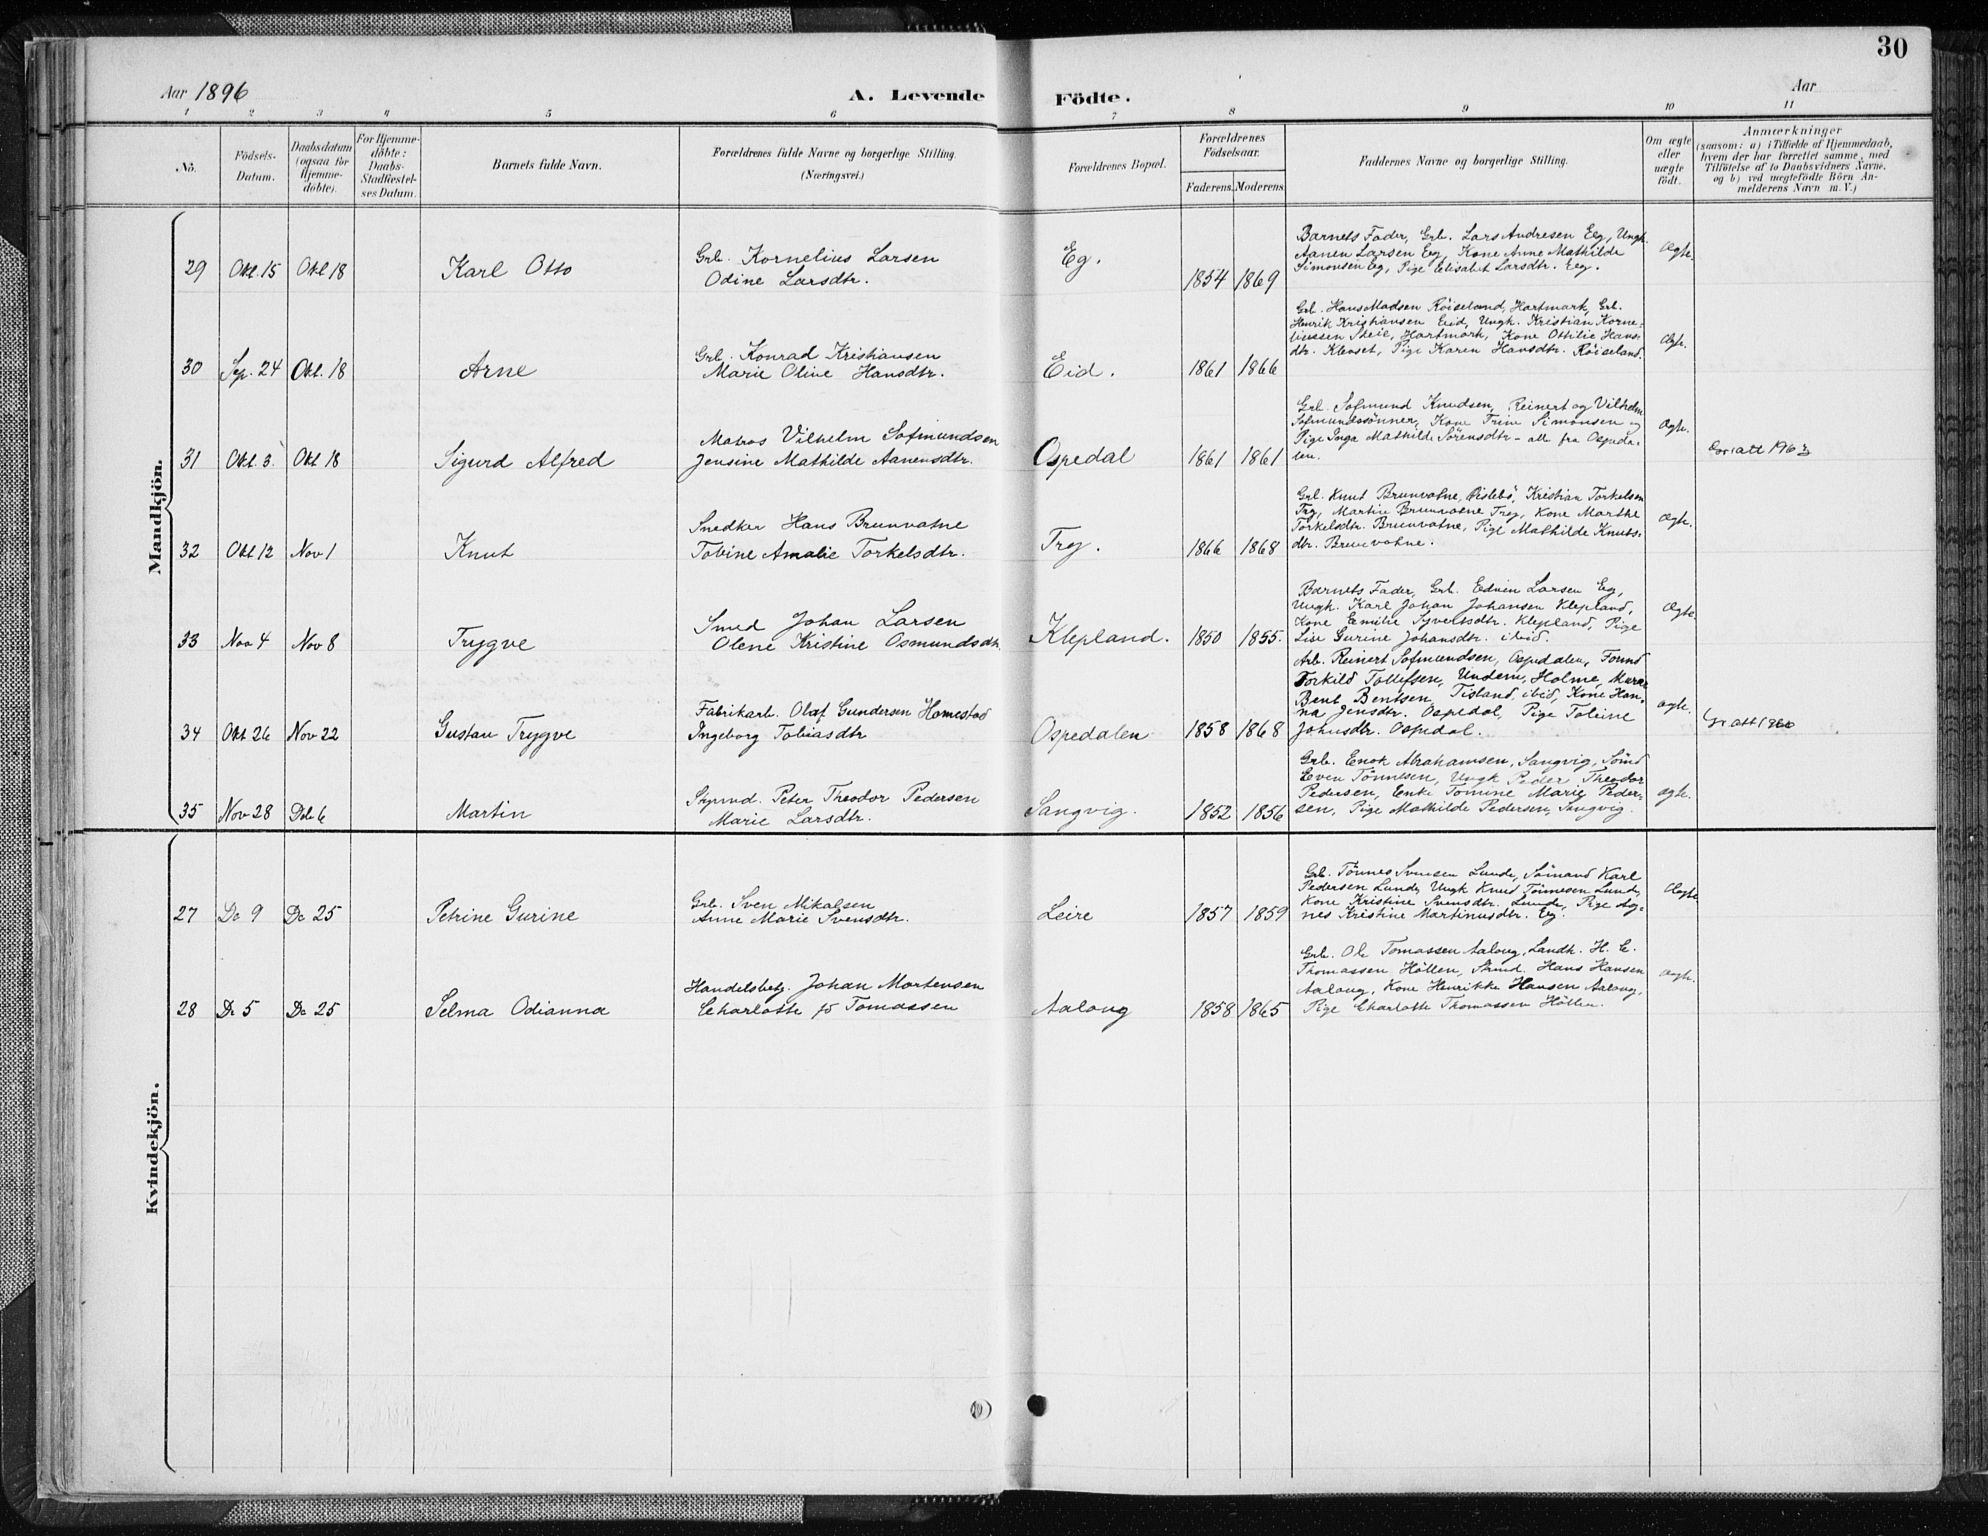 30
Aar 1896
A. Levende Födte.
Aar
1 2 3 4 5 6 7 8 9 10 11
No.
Födsels-Datum.
Daabsdatum (ogsaa for Hjemme-döbte).
For Hjemme-döbte: Daabs-Stadfæstel-ses Datum.
Barnets fulde Navn.
Forældrenes fulde Navne og borgerlige Stilling. (Næringsvei.)
Forældrenes Bopæl.
Forældrenes Födselsaar.
Faderens. Moderens.
Faddernes Navne og borgerlige Stilling.
Om ægte eller uægte födt.
Anmærkninger
(saasom: a) i Tilfælde af Hjemmedaab, hvem der har forrettet samme, med Tilföielse af to Daabsvidners Navne, og b) ved uægtefödte Börn An-melderens Navn m. V.)
Mandkjön.
29 Okt. 15 Okt 18 Karl Otto
Grb. Kornelius Larsen
Odine Larsdtr.
Eg. 1854 1869
Barnets Fader, Grb. Lars Andresen Eeg, Ungk.
Aanen Larsen Eeg, Kone Anne Mathilde
Simonsen Eeg, Pige Elisabet Larsdtr. Eeg.
Ægte.
30 Sep. 24 Okt. 18 Arne
Grb. Konrad Kristiansen
Marie Oline Hansdtr.
Eid. 1861 1866
Grb. Hans Madsen Röiseland, Hartmark, Grb.
Henrik Kristiansen Eid, Ungk. Kristian Korne-
liussen Steie, Hartmark, Kone Ottilie Hans-
dtr. Klevset, Pige Karen Hansdtr. Röiseland.
Ægte.
31 Okt. 3. Okt 18 Sigurd Alfred
Matros Vilhelm Sofmundsen
Jensine Mathilde Aanensdtr.
Ospedal 1861 1861
Grb. Sofmund Knudsen, Reinert og Vilhelm
Sofmundssönner, Kone Trine Simonsen og
Pige Inga Mathilde Sörensdtr - all fra Ospeda-
len.
Ægte.
32 Okt 12 Nov 1 Knut
Snedker Hans Brunvatne
Tobine Amalie Torkelsdtr.
Try. 1866 1868
Grb. Knut Brunvatne, Öislebö, Kristian Torkelsen
Try, Martin Brunvatne Try, Kone Marthe
Torkelsdtr. Brunvatne, Pige Mathilde Knuts-
dtr. Brunvatne.
Ægte.
33 Nov 4 Nov 8 Trygve
Smed Johan Larsen
Olene Kristine Osmundsdtr.
Klepland. 1850 1855.
Barnets Fader, Grb. Edvin Larsen Eg,
Ungk. Karl Johan Johansen Klepland,
Kone Emilie Syvertsdtr. Klepland, Pige
Lise Gurine Johansdtr. ibid.
Ægte
34 Okt 26 Nov 22 Gustav Trygve
Fabrikarb. Olaf Gundersen Homestad
Ingeborg Tobiasdtr
Ospedalen 1858 1868
Arb. Reinert Sofmundsen, Ospedalen,
Torkild Tollefsen, Undem, Holme, Murer
Bent Bentsen, Tisland, ibid, Kone Han-
na Jensdtr. Ospedal, Pige Tobine
Johnsdtr. Ospedal.
ægte.
35 Nov 28 Deb 6 Martin
Peter Theodor Pedersen
Marie Larsdtr.
Sangvig. 1852 1856
Grb. Enok Abrahamsen, Sangvig, Sömd
Even Tönnesen, Ungk Peder Theodor
Pedersen, Enke Tomine Marie Peder-
sen, Pige Mathilde Pedersen, Sangvig.
ægte.
Kvindekjön.
27 De 9 De 25 Petrine Gurine
Grb. Sven Mikalsen
Anne Marie Svensdtr.
Leire 1857 1859
Grb. Tönnes Svensen Lunde, Sömand Karl
Pedersen Lunde, Ungk Knud Tönnesen Lunde,
Kone Kristine Svensdtr. Lunde, Pige Ag-
nes Kristine Martinusdtr. Eeg.
Ægte
28 De 5 De 25 Selma Odianna
Handelsbetj. Johan Mortensen
Charlotte fö Tomassen
Aaloug 1858 1865
Grb. Ole Tomassen Aaloug, Landh. H. C.
Thomassen Höllen, Hans Hansen
Aaloug, Kone Henrikke Hansen Aaloug,
Pige Charlotte Thomassen Höllen.
ægte.